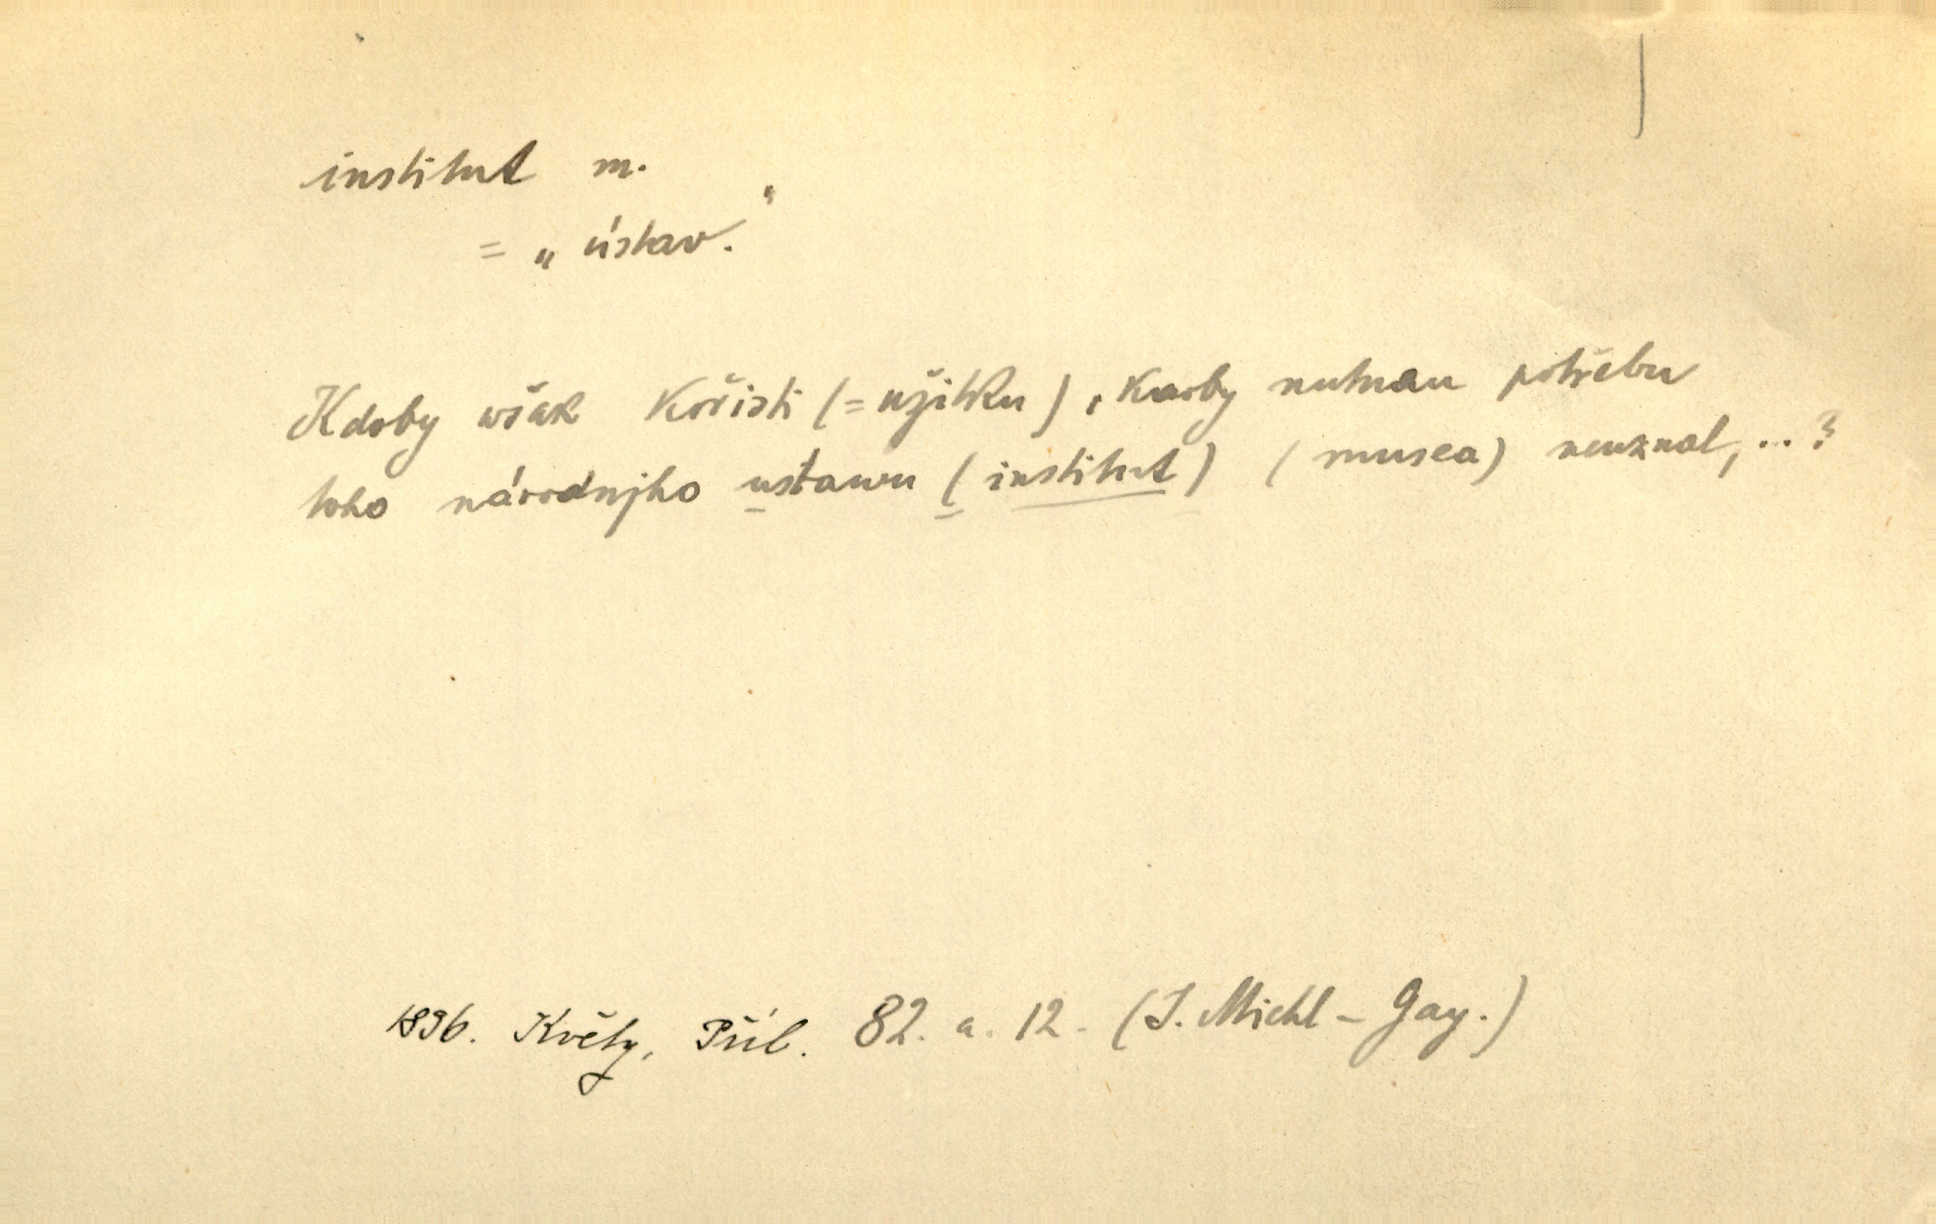 institut m.
= „ústav.“
Kdoby wšak kořisti (= užitku), kdoby nutnau potřebu
toho národnjho ustawu (institut) (musea) neuznal, ...?
1836. Květy, Příl. 82. a. 12. (J. Michl - Gay.)